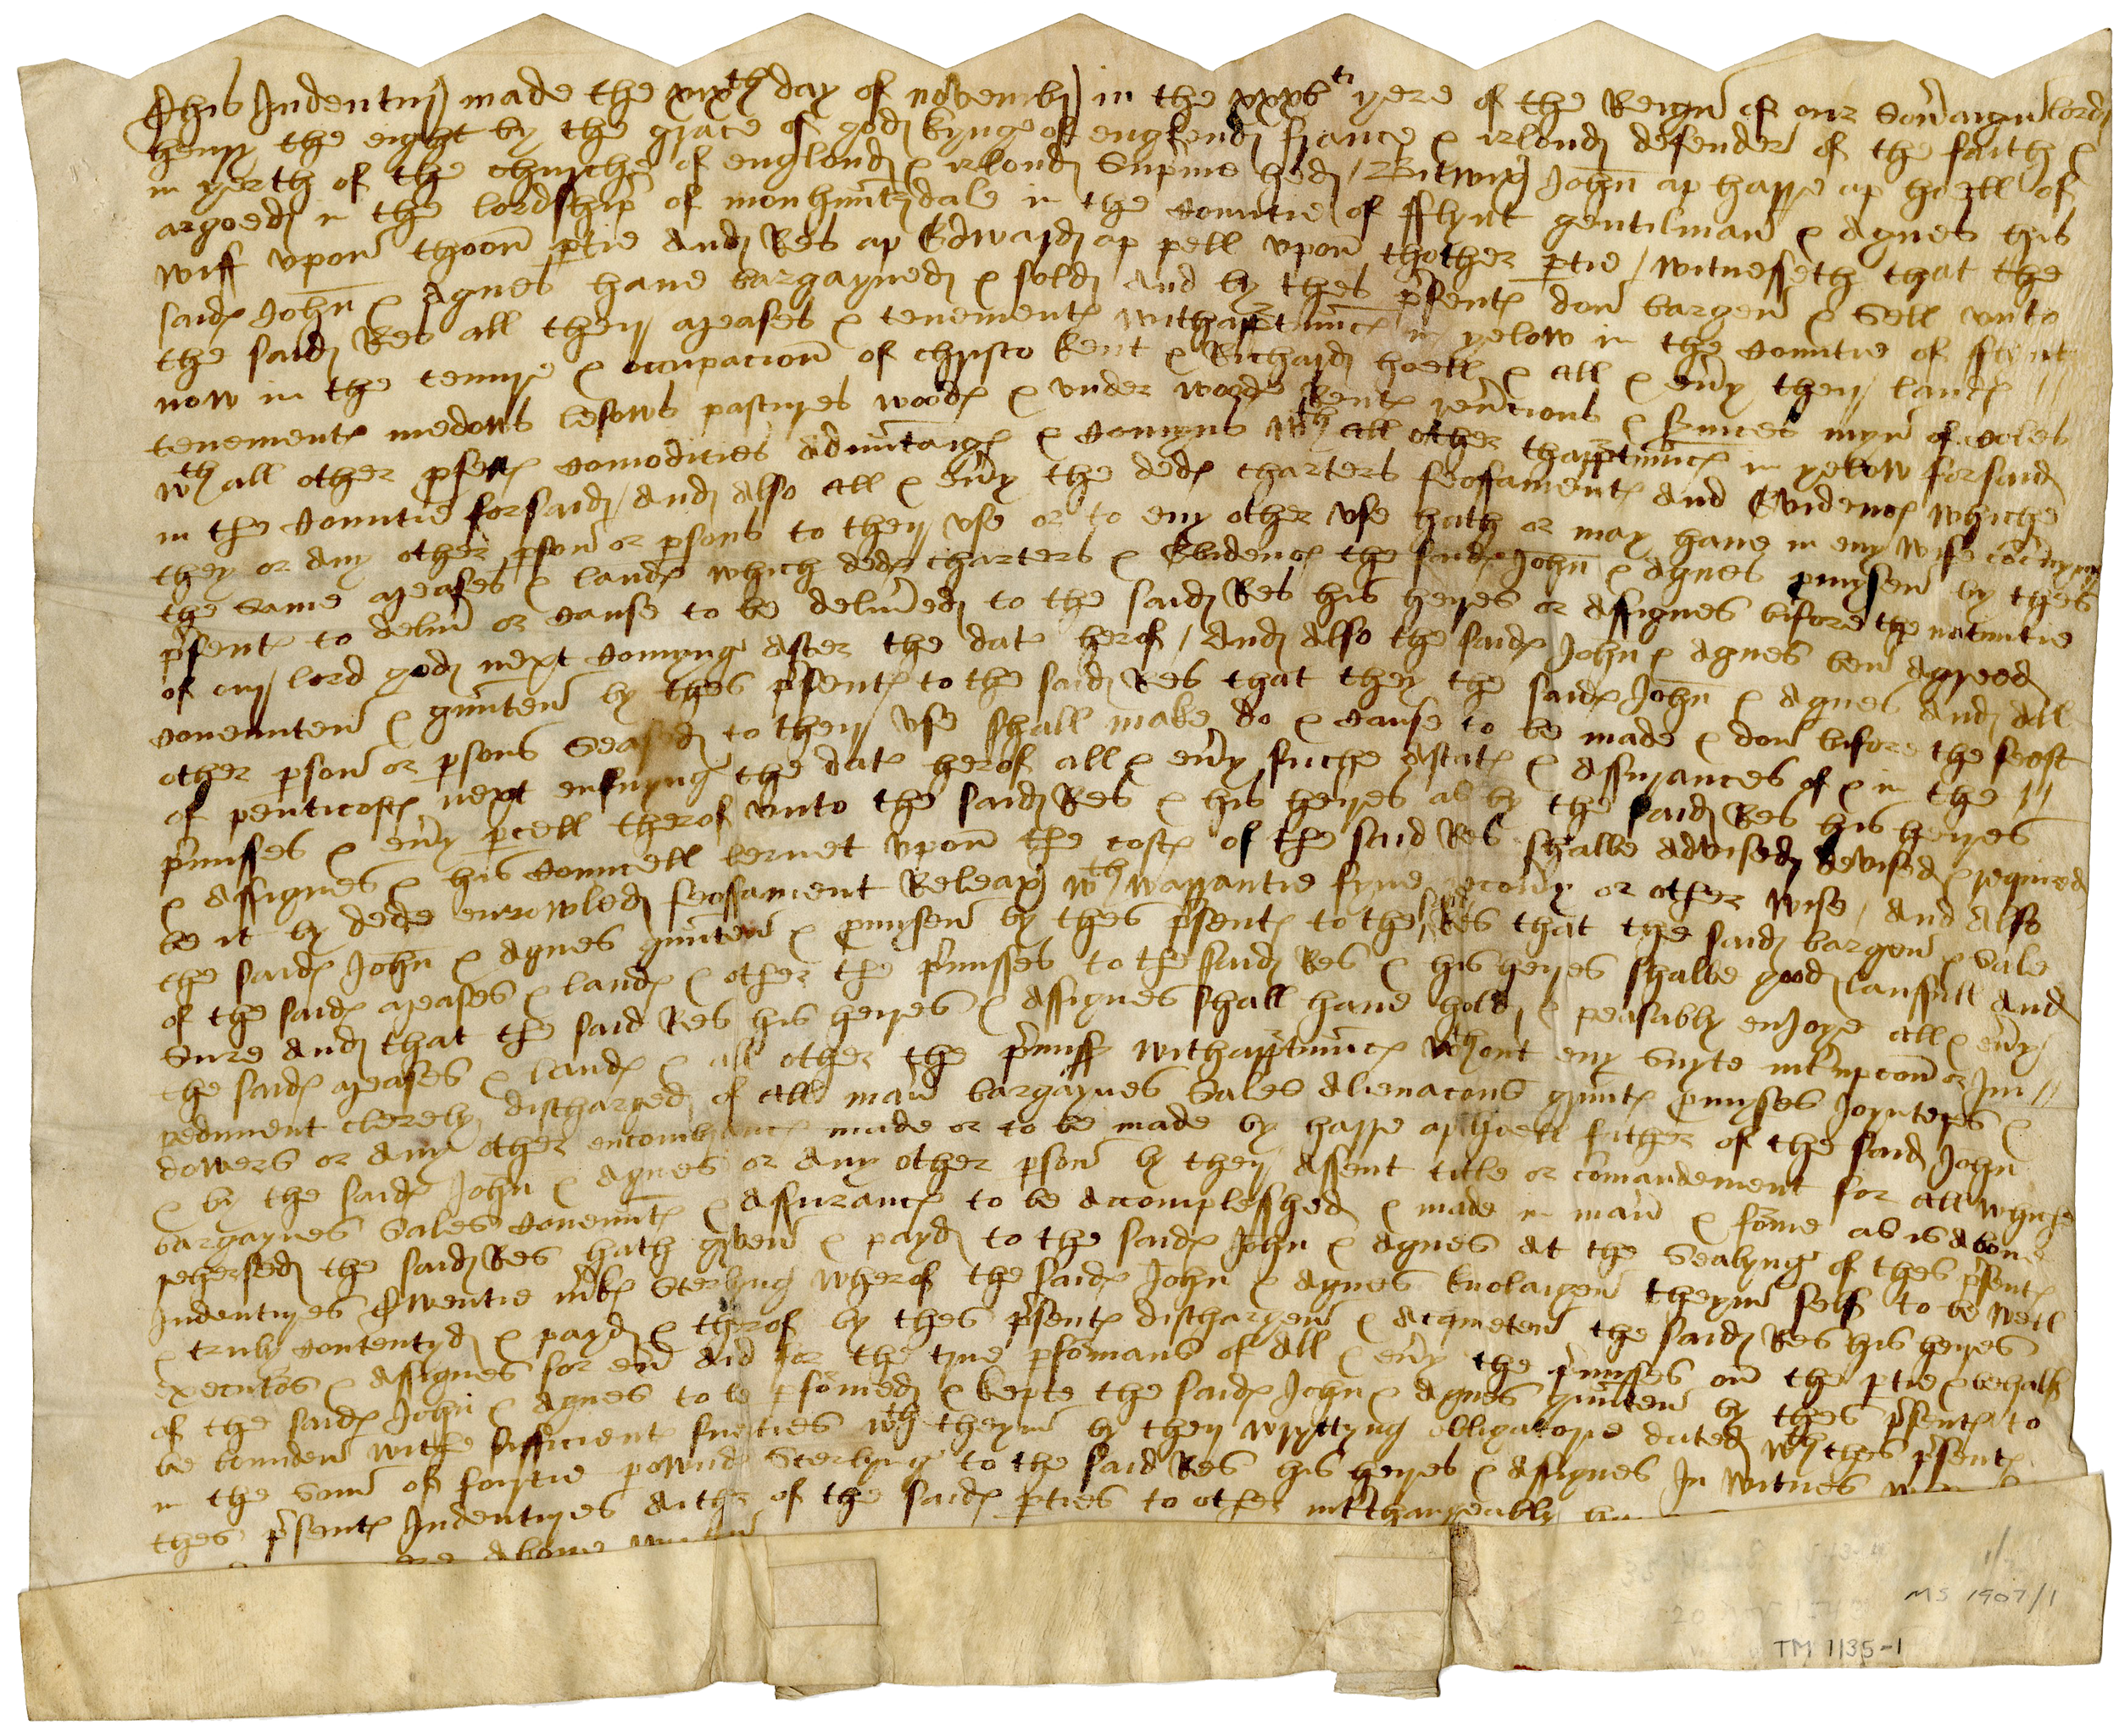 This Indentur made the xixth day of novembr in the xxxvti yere of the Reign of our Sov'aign lord
henry the eight by the grace of god kynge of englond france & irlond defender of the faith &
in yerth of the churche of englond & irlond Supme hed / Bitwix John ap harre ap hoell of
argoed in the lordship of monhuntdale in the countie of fflynt gentilman & Agnes his
wiff upon thoon ptie And Res ap Edward ap pell upon thother ptie / witnesseth that the
said John & Agnes have bargayned & sold And by thes psent don bargen & Sell unto
the said Res all their meases & tenement withapptunnc in yelow in the countie of flynt
now in the tenure & occupacion of christo kent & Richard hoell & all & eny their land
tenement medows lesows pastures wood & under wood Rent revcions & svuices myn of coles
wth all other psett comodities advantag & comyns wth all other thapptunnc in yelow forsaid
in the countie forsaid / And Also All & evy the ded charters feoffament And Evidenc whiche
they or Any other pson or psons to their use or to eny other use hath or may have in eny wise concnyng
the same meases & land which ded charters & Evidenc the said John & Agnes pmysen by thes
psent to deliv or cause to be delived to the said Res his heyres or Assignes bifore the nativitie
of our lord god next comyng After the dat herof / And Also the said John & Agnes ben Agreed
covennten & graunten by thes psent to the said Res that they the said John & Agnes And All
other pson or psons Seased to their use shall make do & cause to be made & don bifore the feast
of penticost next ensuyng the dat herof all & evy suche Astat & Assurances of & in the
pmisses & evy pcell therof unto the said Res & his heyres as by the said Res his heyres
& Assignes & his councell lernet upon the cost of the said Res shalbe Advised devised & required
be it by dede enrowled feoffament Releax wth warrantie fyne recovy or other wise / And Also
the said John & Agnes graunten & pmysen by thes psent to the said Res that the said bargen & Sale
of the said meases & land & other the pmisses to the said Res & his heyres shalbe good laufull And
Sure And that the said Res his heyres & Assignes shall have hold & peasably enJoye all & evy
the said meases & land & all other the pmiss withapptunnc wthout eny Suyte intrupcon or Im
pediment clerely discharged of All man bargaynes Sales Alienacons graunt pmyses Joynters &
dowers or Any other encombranc made or to be made by harre ap hoell father of the said John
& by the said John & Agnes or Any other pson by their Assent title or comandement for All whiche
bargaynes Sales Covennt & Assuranc to be Acomplesshed & made in man & forme as is Above
rehersed the said Res hath given & payd to the said John & Agnes At the Sealyng of thes psent
Indentures Twentie mrk Sterlyng wherof the said John & Agnes knolaigen theym self to be well
& truly contentyd & payd & therof by thes psent dischargen & Acqueten the said Res his heyres
executors & Assignes for ev And for the true pformans of All & evy the pmisses on the ptie & behalf
of the said John & Agnes to be pformed & kepte the said John & Agnes graunten by thes psent to
be bounden withe sufficient suerties wth theym by their wryttyng obligatorie dated wth thes psent
in the Som of fourtie pownd Sterlyng to the said Res his heyres & Assignes In witnes
thes psent Indentures aither of the said pties to other intrchangeably
Above
MS 1907/1
TM 1135-1